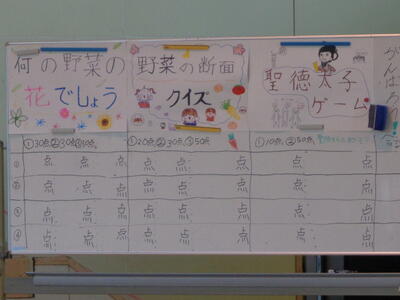 何の野菜の
花でしょう
野菜の断面
クイズ
聖徳太子
ゲーム
①30点②30点③
①20点②30点③50点
①10点②50点
① 点 点 点 点 点 点 点 点
② 点 点 点 点 点 点 点 点
③ 点 点 点 点 点 点 点 点
④ 点 点 点 点 点 点 点 点